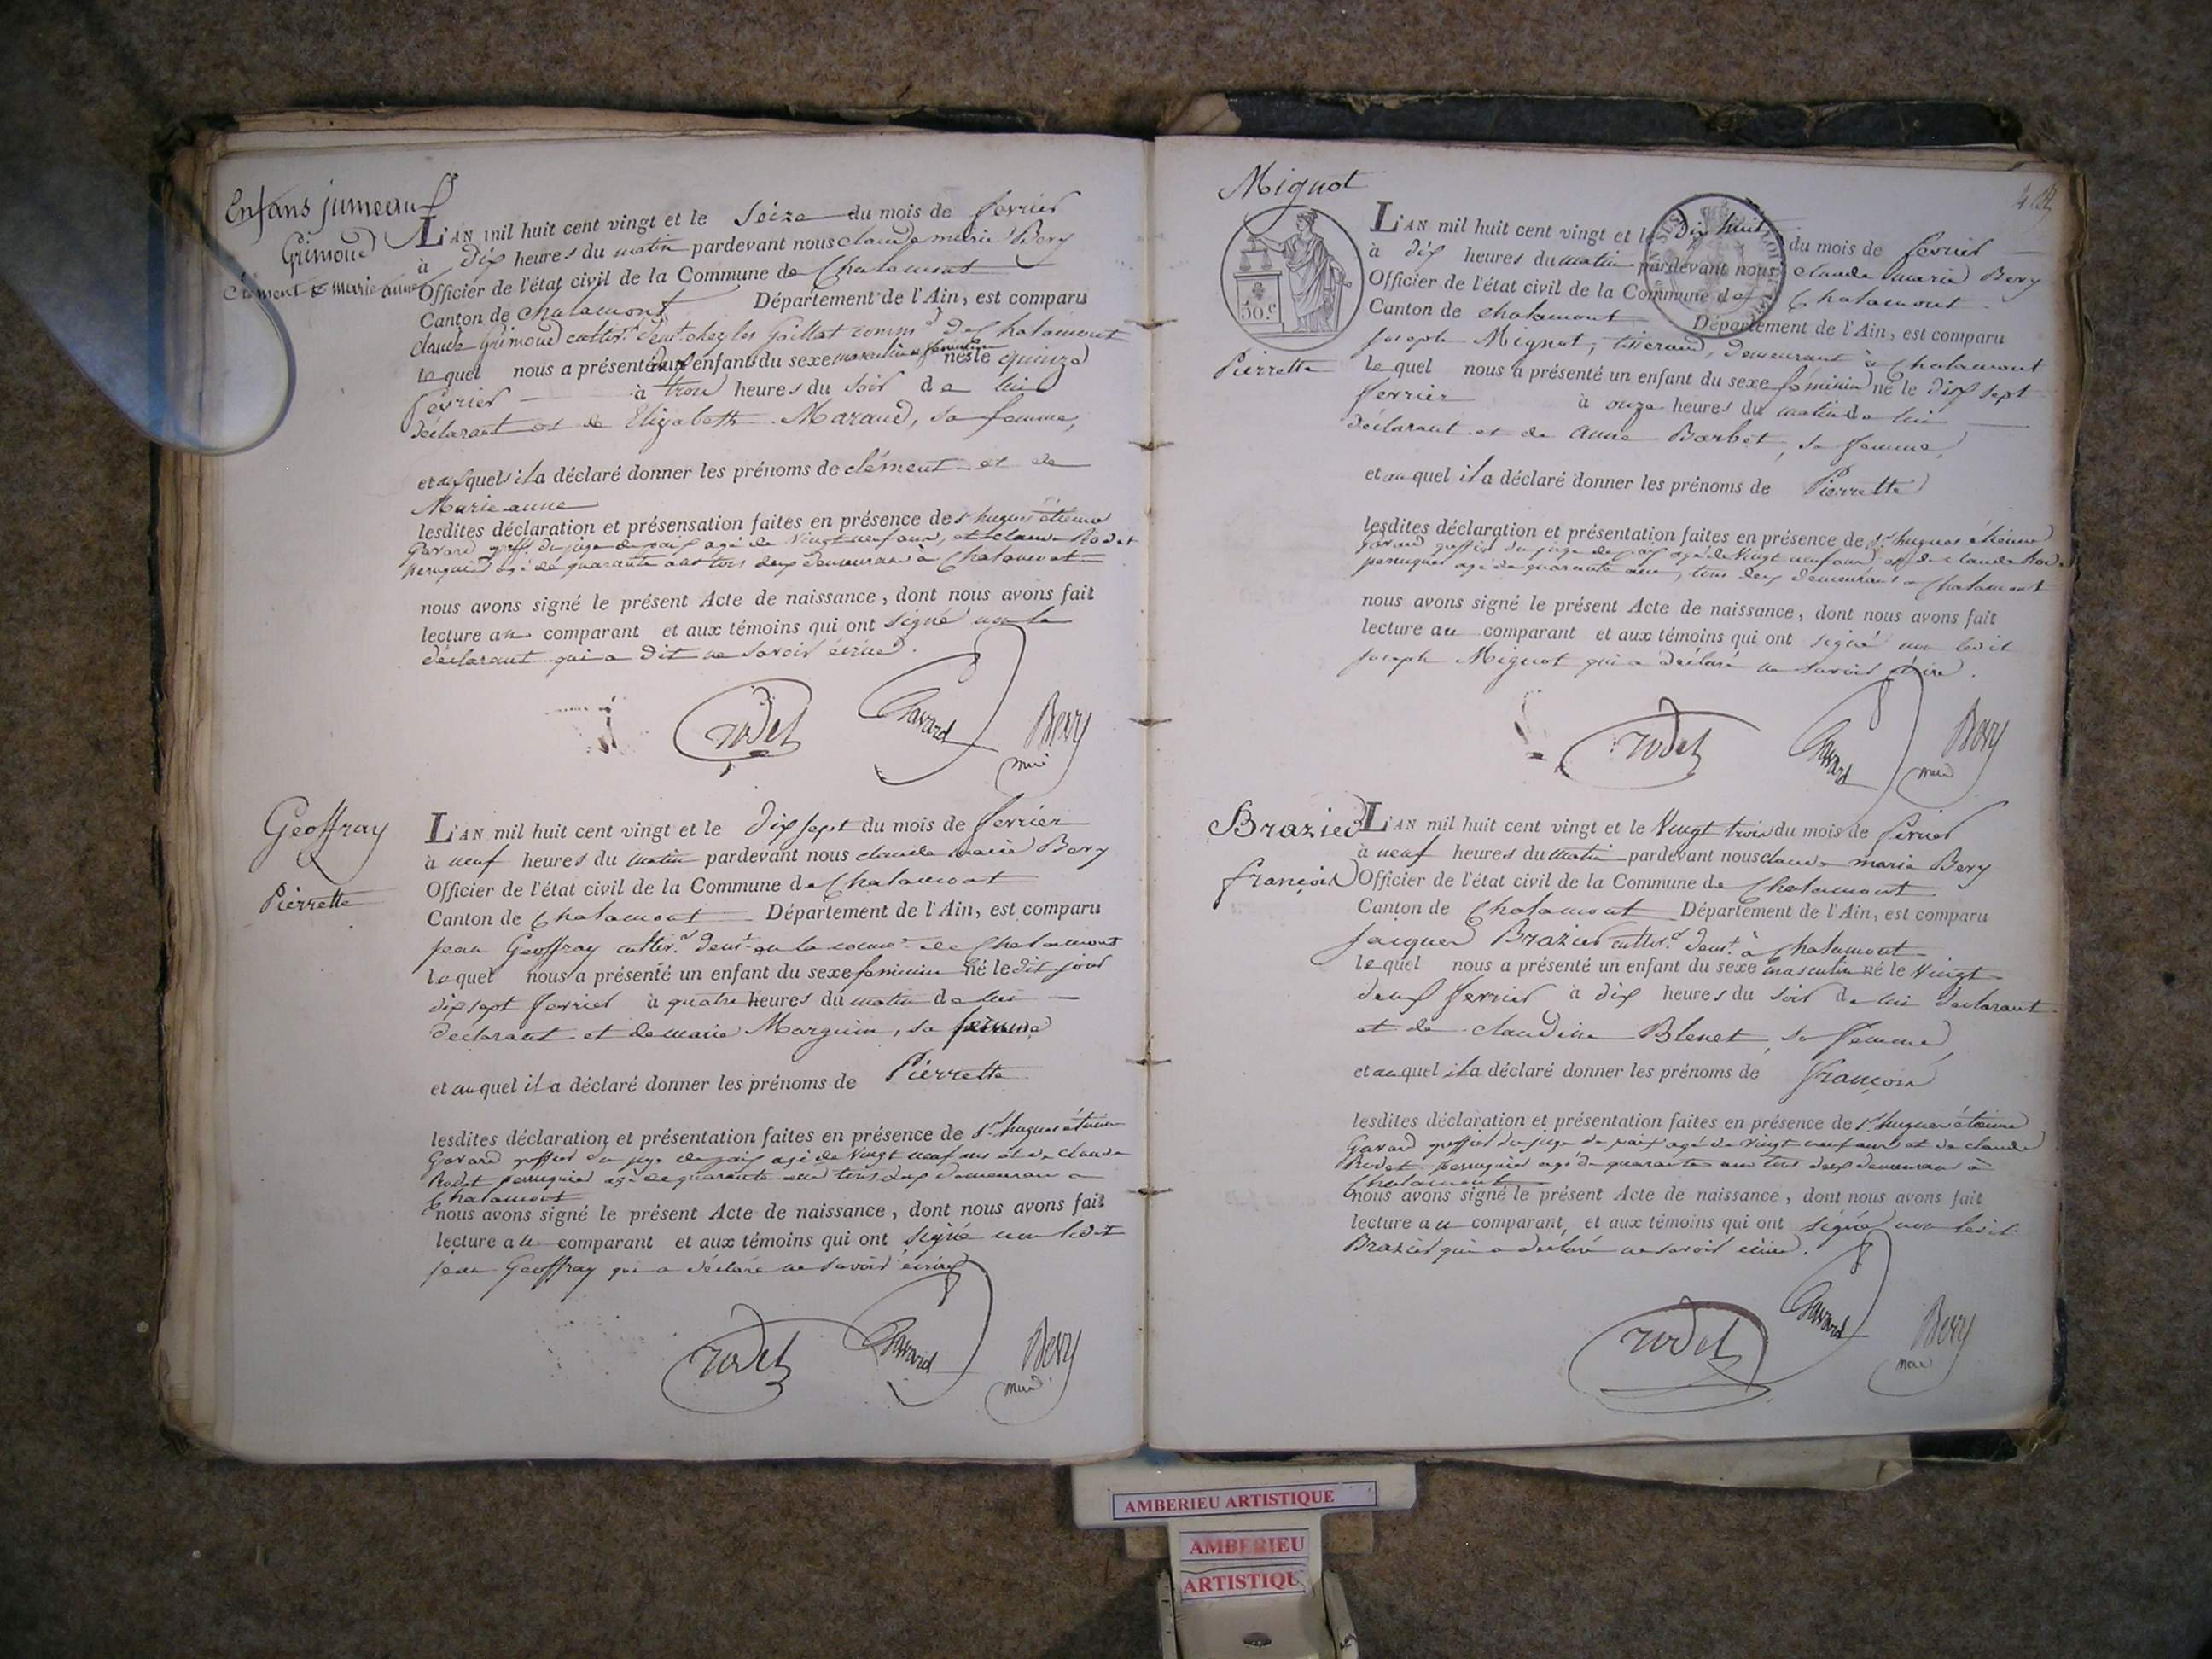 Enfans jumeaux
Grimoud
Clément & Marie anne
L'AN mil huit cent vingt et le Seize du mois de fevrier
à Dix heures du matin pardevant nous claude marie Bery
Officier de l'état civil de la Commune de Chalamont
Canton de chalamont Département de l'Ain, est comparu
claude Grimoud cultiv.r dem.t chez les Gaillat comm de Chalamont
lequel nous a présenté deux enfants du sexe masculin & feminin nés le quinze
fevrier à trois heures du soir de lui
déclarant et de Elizabeth Maraud, sa femme,
et auxquels il a déclaré donner les prénoms de clément et de
Marie anne
lesdites déclaration et présensation faites en présence de s.r hugues étienne
Gavard greff. du juge de paix agé de Vingt neuf ans, et claude Rodet
perruquier agé de quarante ans tous deux demeurans à Chalamont
nous avons signé le présent Acte de naissance, dont nous avons fait
lecture au comparant et aux témoins qui ont signé non le
déclarant qui a dit ne savoir écrire.
rodet Gavard Bery
maire
Geoffray
Pierrette
L'AN mil huit cent vingt et le dix sept du mois de fevrier
à neuf heures du matin pardevant nous claude marie Bery
Officier de l'état civil de la Commune de Chalamont
Canton de Chalamont Département de l'Ain, est comparu
jean Geoffray cultiv.r dem.t en la comm.e de Chalamont
lequel nous a présenté un enfant du sexe feminin né le dit jour
dix sept fevrier à quatre heures du matin de lui
déclarant et de marie Marguin, sa femme,
et auquel il a déclaré donner les prénoms de Pierrette
lesdites déclaration et présentation faites en présence de s.r hugues étienne
Gavard greffier du juge de paix agé de Vingt neuf ans et de claude
Rodet perruquier agé de quarante ans tous deux demeurans a
Chalamont
nous avons signé le présent Acte de naissance, dont nous avons fait
lecture au comparant et aux témoins qui ont signé non ledit
jean Geoffray qui a déclaré ne savoir écrire
rodet Gavard Bery
maire
Mignot
50 c
Pierrette
L'AN mil huit cent vingt et le dix huit du mois de fevrier
à dix heures du matin pardevant nous claude marie Bery
Officier de l'état civil de la Commune de Chalamont
Canton de chalamont Département de l'Ain, est comparu
joseph Mignot, tisserand, demeurant à Chalamont
lequel nous a présenté un enfant du sexe féminin né le dix sept
fevrier à onze heures du matin de lui
déclarant et de anne Barbet, sa femme,
et auquel il a déclaré donner les prénoms de Pierrette
lesdites déclaration et présentation faites en présence de s.r hugues étienne
Gavard greffier du juge de paix agé de Vingt neuf ans et de claude Rodet
perruquier agé de quarante ans, tous deux demeurans a Chalamont
nous avons signé le présent Acte de naissance, dont nous avons fait
lecture au comparant et aux témoins qui ont signé non ledit
joseph Mignot qui a déclaré ne savoir écrire.
rodet Gavard Bery
maire
Brazier
françois
L'AN mil huit cent vingt et le Vingt trois du mois de fevrier
à neuf heures du matin pardevant nous claude marie Bery
Officier de l'état civil de la Commune de Chalamont
Canton de Chalamont Département de l'Ain, est comparu
Jacques Brazier cultiv.r dem.t à Chalamont
lequel nous a présenté un enfant du sexe masculin né le Vingt
deux fevrier à dix heures du soir de lui declarant
et de claudine Blenet, sa femme,
et auquel il a déclaré donner les prénoms de françois
lesdites déclaration et présentation faites en présence de s.r hugues étienne
Gavard greffier du juge de paix agé de vingt neuf ans et de claude
Rodet perruquier agé de quarante ans tous deux demeurans à
Chalamont
nous avons signé le présent Acte de naissance, dont nous avons fait
lecture au comparant, et aux témoins qui ont signé non ledit
Brazier qui a déclaré ne savoir écrire.
rodet Gavard Bery
maire
AMBERIEU ARTISTIQUE
AMBERIEU
ARTISTIQU